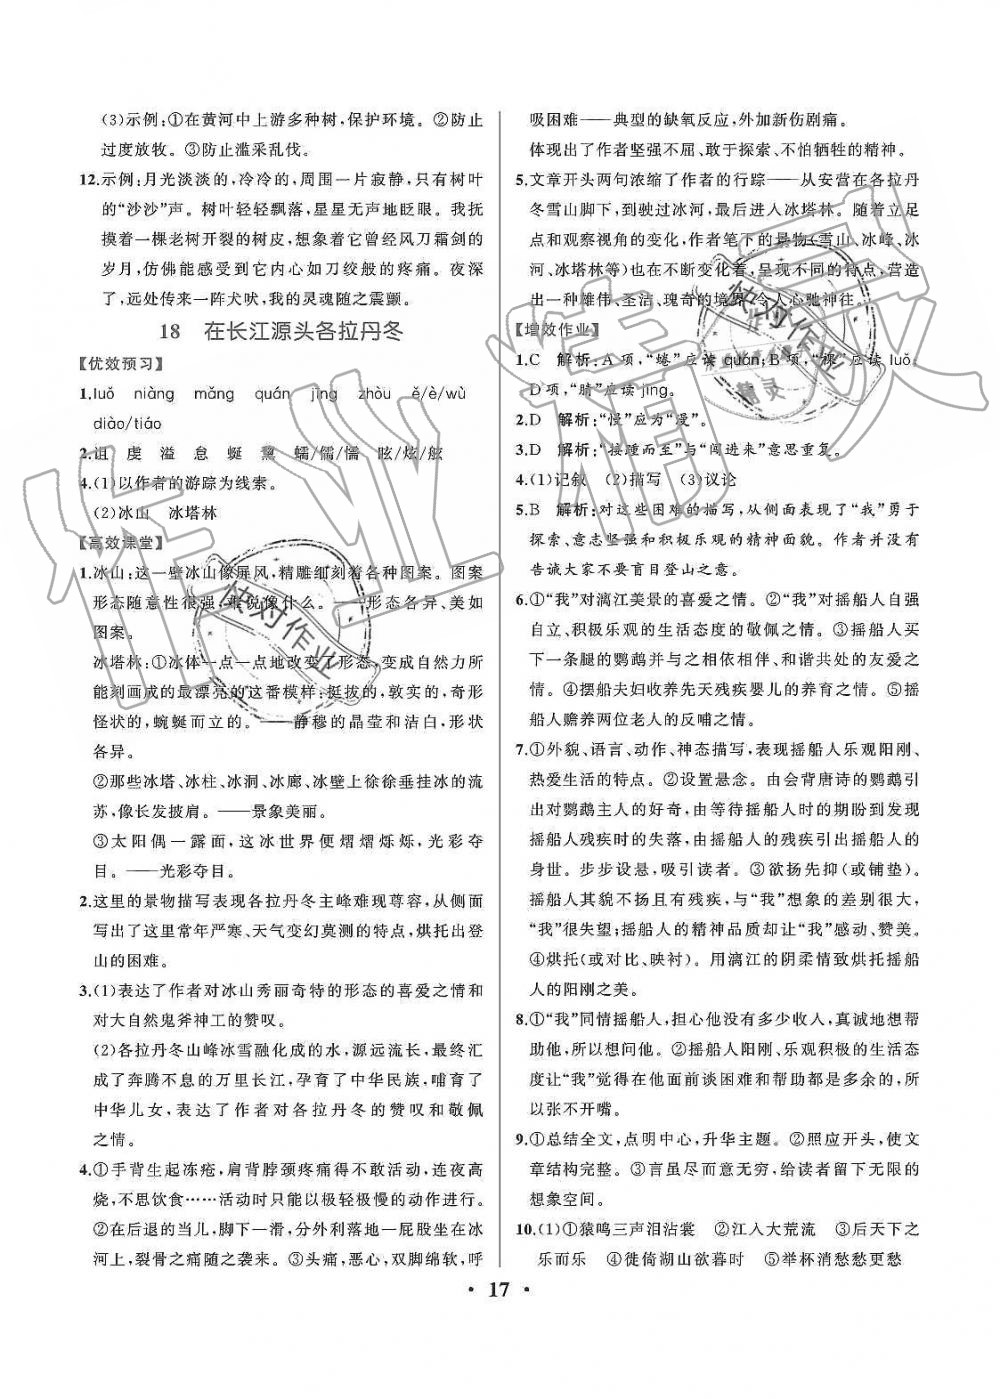 (3)示例:①在黄河中上游多种树,保护环境。②防止
过度放牧。③防止滥采乱伐。
12.示例:月光淡淡的,冷冷的,周围一片寂静,只有树叶
的“沙沙”声。树叶轻轻飘落,星星无声地眨眼。我抚
摸着一棵老树开裂的树皮,想象着它曾经风刀霜剑的
岁月,仿佛能感受到它内心如刀绞般的疼痛。夜深
了,远处传来一阵犬吠,我的灵魂随之震颤。
18 在长江源头各拉丹冬
【优效预习】
1.luǒ niàng mǎng quán jīng zhòu ě/è/wù
diào/tiáo
2.诅 虔 溢 怠 蜒 熏 蠕/儒/懦 眩/炫/舷
4.(1)以作者的游踪为线索。
(2)冰山 冰塔林
【高效课堂】
1.冰山:这一壁冰山像屏风,精雕细刻着各种图案。图案
形态随意性很强,难说像什么。——形态各异、美如
图案。
冰塔林:①冰体一点一点地改变了形态,变成自然力所
能刻画成的最漂亮的这番模样:挺拔的,敦实的,奇形
怪状的,蜿蜒而立的。——静穆的晶莹和洁白,形状
各异。
②那些冰塔、冰柱、冰洞、冰廊、冰壁上徐徐垂挂冰的流
苏,像长发披肩。——景象美丽。
③太阳偶一露面,这冰世界便熠熠烁烁,光彩夺
目。——光彩夺目。
2.这里的景物描写表现各拉丹冬主峰难现尊容,从侧面
写出了这里常年严寒、天气变幻莫测的特点,烘托出登
山的困难。
3.(1)表达了作者对冰山秀丽奇特的形态的喜爱之情和
对大自然鬼斧神工的赞叹。
(2)各拉丹冬山峰冰雪融化成的水,源远流长,最终汇
成了奔腾不息的万里长江,孕育了中华民族,哺育了
中华儿女,表达了作者对各拉丹冬的赞叹和敬佩
之情。
4.①手背生起冻疮,肩背脖颈疼痛得不敢活动,连夜高
烧,不思饮食……活动时只能以极轻极慢的动作进行。
②在后退的当儿,脚下一滑,分外利落地一屁股坐在冰
河上,裂骨之痛随之袭来。③头痛,恶心,双脚绵软,呼
吸困难——典型的缺氧反应,外加新伤剧痛。
体现出了作者坚强不屈、敢于探索、不怕牺牲的精神。
5.文章开头两句浓缩了作者的行踪——从安营在各拉丹
冬雪山脚下,到驶过冰河,最后进入冰塔林。随着立足
点和观察视角的变化,作者笔下的景物(雪山、冰峰、冰
河、冰塔林等)也在不断变化着,呈现不同的特点,营造
出一种雄伟、圣洁、瑰奇的境界,令人心驰神往。
【增效作业】
1.C 解析:A项,“蜷”应读quán;B项,“裸”应读luǒ;
D项,“腈”应读jīng。
2.D 解析:“慢”应为“漫”。
3.D 解析:“接踵而至”与“闯进来”意思重复。
4.(1)记叙 (2)描写 (3)议论
5.B 解析:对这些困难的描写,从侧面表现了“我”勇于
探索、意志坚强和积极乐观的精神面貌。作者并没有
告诫大家不要盲目登山之意。
6.①“我”对漓江美景的喜爱之情。②“我”对摇船人自强
自立、积极乐观的生活态度的敬佩之情。③摇船人买
下一条腿的鹦鹉并与之相依相伴、和谐共处的友爱之
情。④摆船夫妇收养先天残疾婴儿的养育之情。⑤摇
船人赡养两位老人的反哺之情。
7.①外貌、语言、动作、神态描写,表现摇船人乐观阳刚、
热爱生活的特点。②设置悬念。由会背唐诗的鹦鹉引
出对鹦鹉主人的好奇,由等待摇船人时的期盼到发现
摇船人残疾时的失落,由摇船人的残疾引出摇船人的
身世。步步设悬,吸引读者。③欲扬先抑(或铺垫)。
摇船人其貌不扬且有残疾,与“我”想象的差别很大,
“我”很失望;摇船人的精神品质却让“我”感动、赞美。
④烘托(或对比、映衬)。用漓江的阴柔情致烘托摇船
人的阳刚之美。
8.①“我”同情摇船人,担心他没有多少收入,真诚地想帮
助他,所以想问他。②摇船人阳刚、乐观积极的生活态
度让“我”觉得在他面前谈困难和帮助都是多余的,所
以张不开嘴。
9.①总结全文,点明中心,升华主题。②照应开头,使文
章结构完整。③言虽尽而意无穷,给读者留下无限的
想象空间。
10.(1)①猿鸣三声泪沾裳 ②江入大荒流 ③后天下之
乐而乐 ④徙倚湖山欲暮时 ⑤举杯消愁愁更愁
• 17 •
作业精灵
快对作业
快对作业
作业
精灵